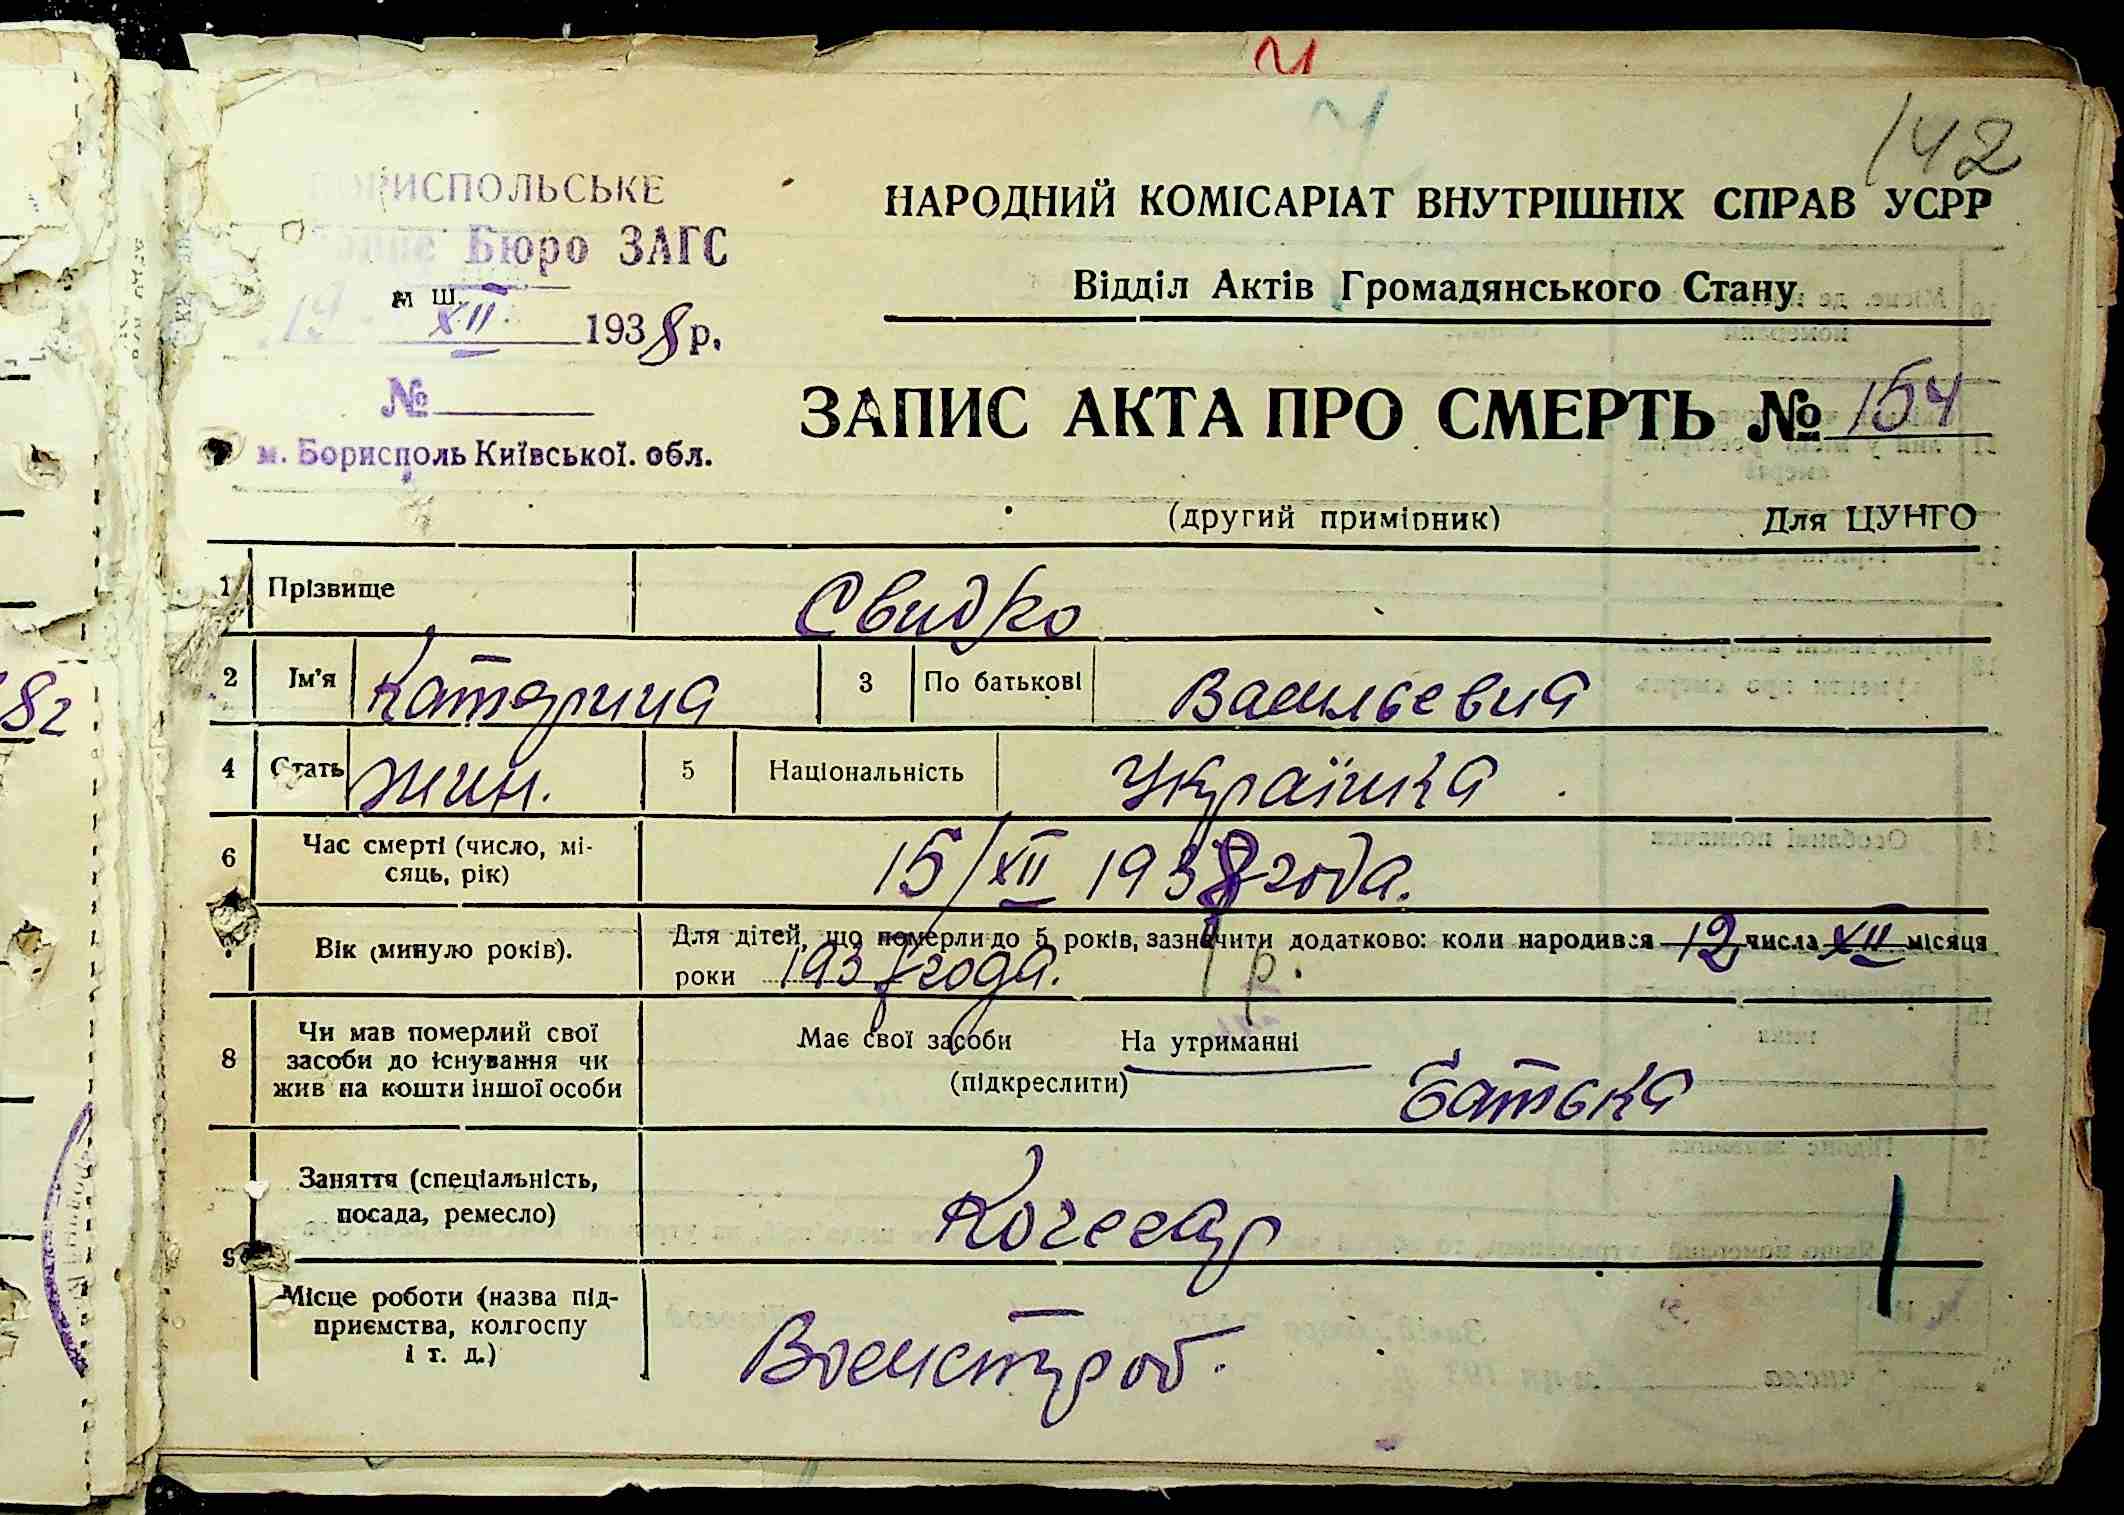 142
БОРИСПОЛЬСЬКЕ
НАРОДНИЙ КОМІСАРІАТ ВНУТРІШНІХ СПРАВ УСРР
Бюро ЗАГС
Відділ Актів Громадянського Стану
19 XII 1938 р.
№
ЗАПИС АКТА ПРО СМЕРТЬ № 154
м. Борисполь Київської. обл.
(другий примірник) Для ЦУНГО
1 Прізвище Свидко
2 Ім'я Катерина 3 По батькові Васильевна
4 Стать жин. 5 Національність Українка
6 Час смерті (число, мі-
сяць, рік)
15/XII 1938 года.
Вік (минуло років).
Для дітей, що померли до 5 років, зазначити додатково: коли народився 12 числа XII місяця
роки 1937 года. 1 р.
8 Чи мав померлий свої
засоби до існування чи
жив на кошти іншої особи
Має свої засоби На утриманні
(підкреслити)
батька
9 Заняття (спеціальність,
посада, ремесло)
Кочегар
Місце роботи (назва під-
приємства, колгоспу
і т. д.)
82